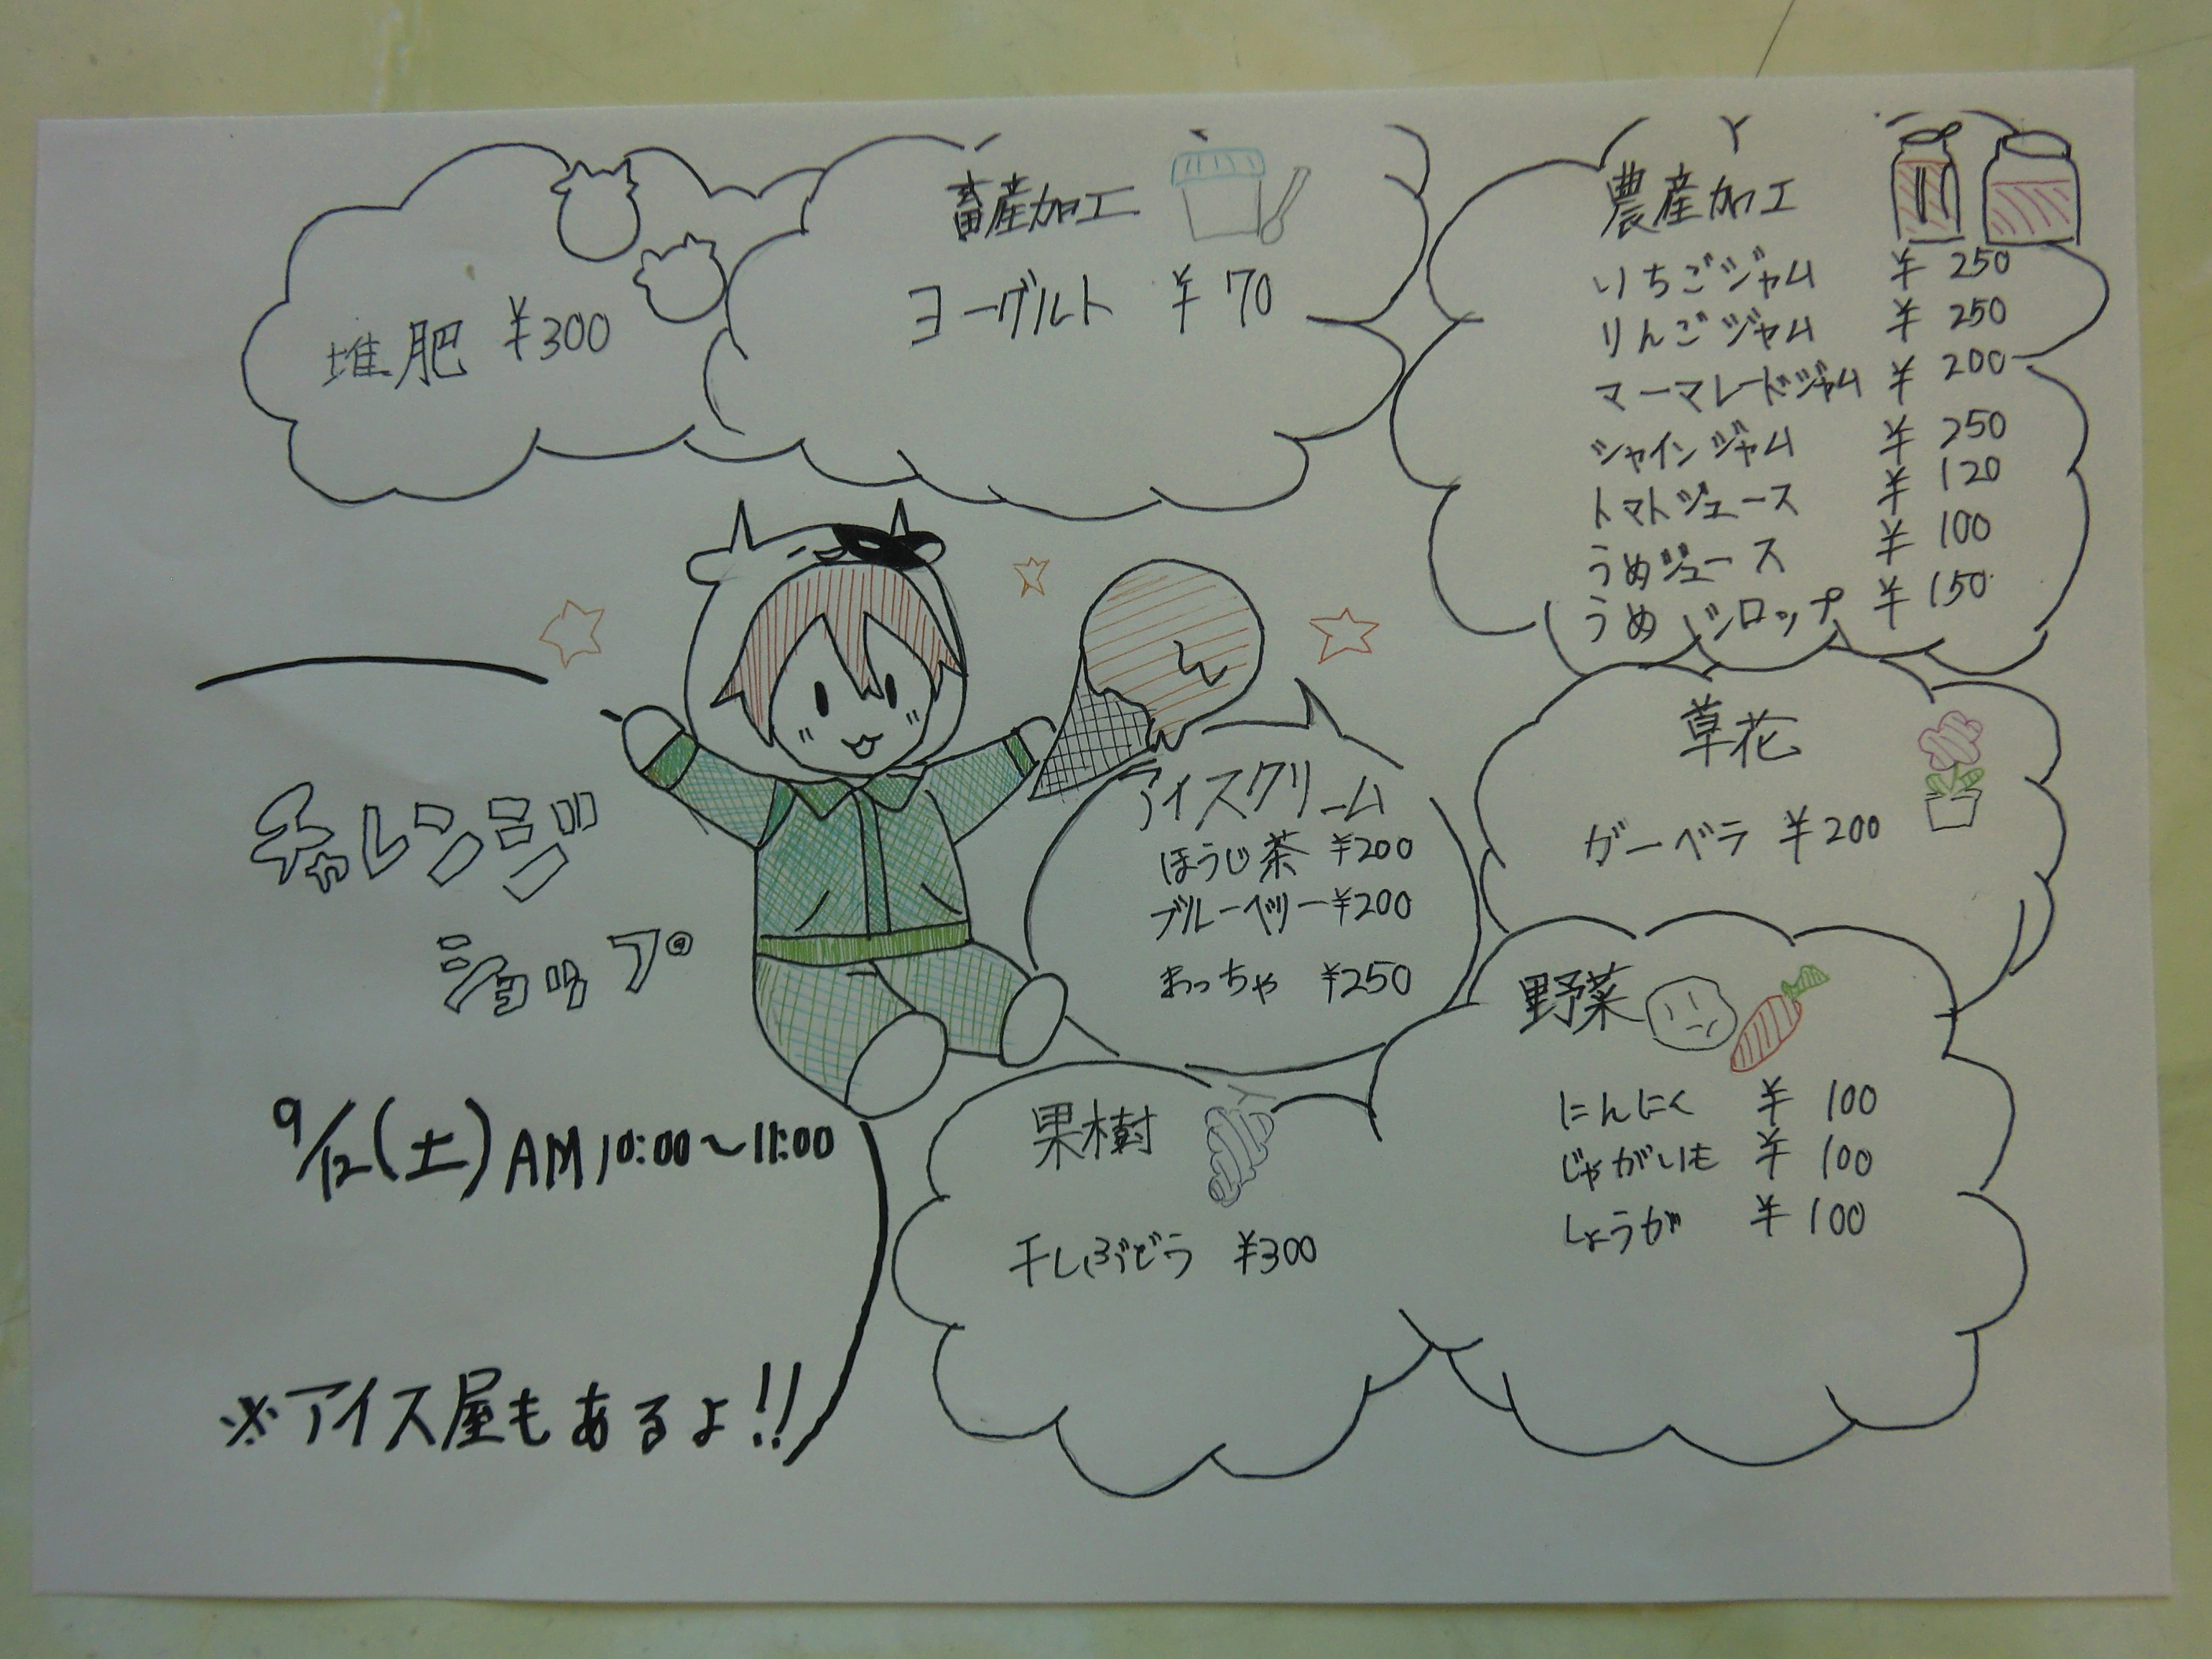 堆肥 ¥300
畜産加工
ヨーグルト ¥70
農産加工
いちごジャム ¥250
りんごジャム ¥250
マーマレードジャム ¥200
シャインジャム ¥250
トマトジュース ¥120
うめジュース ¥100
うめシロップ ¥150
アイスクリーム
ほうじ茶 ¥200
ブルーベリー ¥200
まっちゃ ¥250
草花
ガーベラ ¥200
野菜
にんにく ¥100
じゃがいも ¥100
しょうが ¥100
果樹
干しぶどう ¥300
チャレンジ
ショップ
9/12(土) AM10:00~11:00
※アイス屋もあるよ!!